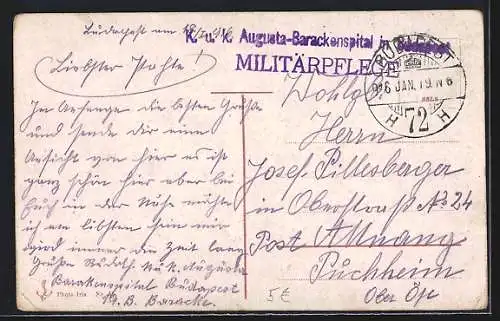 Budapest am 18/I. 916
K. u. k. Augusta-Barackenspital in Budapest
MILITÄRPFLEGE
BUDAPEST
916 JAN. 19. N 6
H 72 H
Liebster
Im Anfange die besten Grüße
und sende dir eine
Ansicht von hier es ist
ganz schön hier aber bei
Euch in der Nähe möchte
ich am liebsten sein mir
wird immer die Zeit lang
Grüße Rudolf K.u.K. Augusta
Barakenspital Budapest
19. B. Baracke.
Wohlg.
Herrn
Josef Pillesberger
in Oberstraß No 24
Post Attnang
Puchheim
Ober Öst
5€
Photo Iris